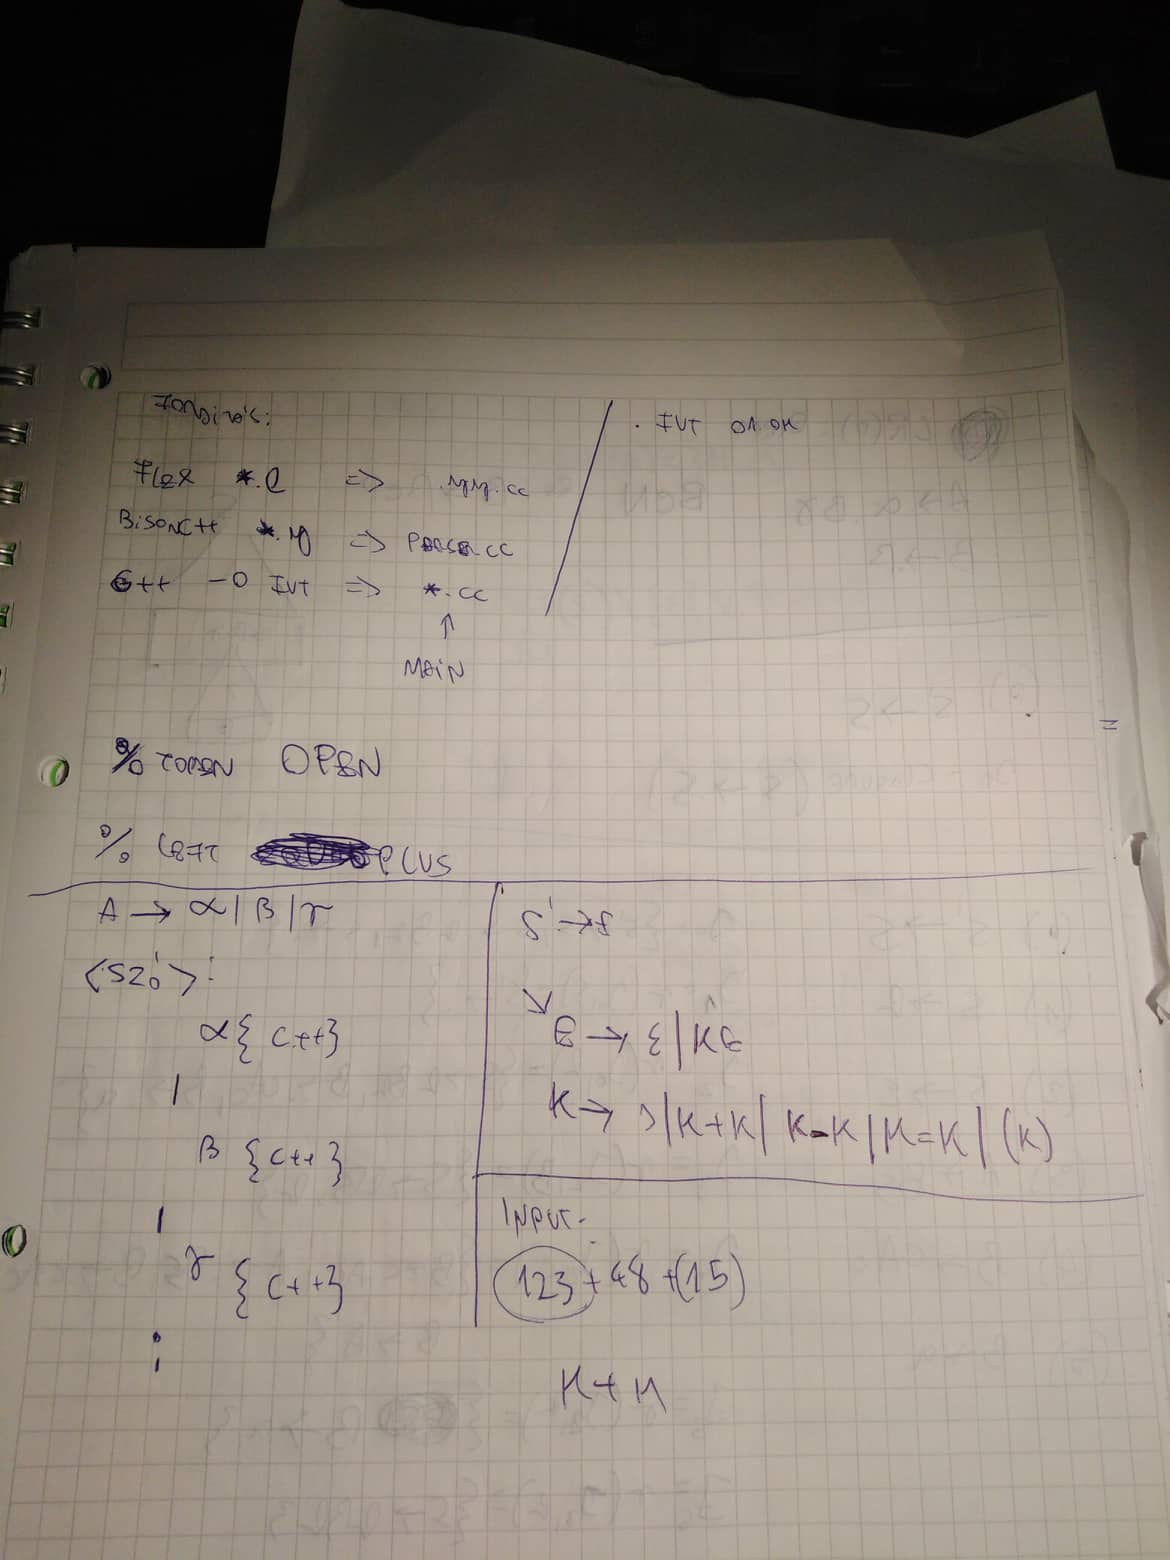 Fordítás:
Flex *.l => .yy.cc
Bisonc++ *.y => parser.cc
G++ -o IVT => *.cc
↑
MAIN
. IVT 01.OK
% TOKEN OPEN
% LEFT PLUS
A → α | β | γ
<SZÓ> :
α { C++ }
|
β { C++ }
|
γ { C++ }
;
S' → S
→ ε | K
K → | K+K | K-K | K=K | (K)
INPUT.
123 + 48 + (15)
K + K